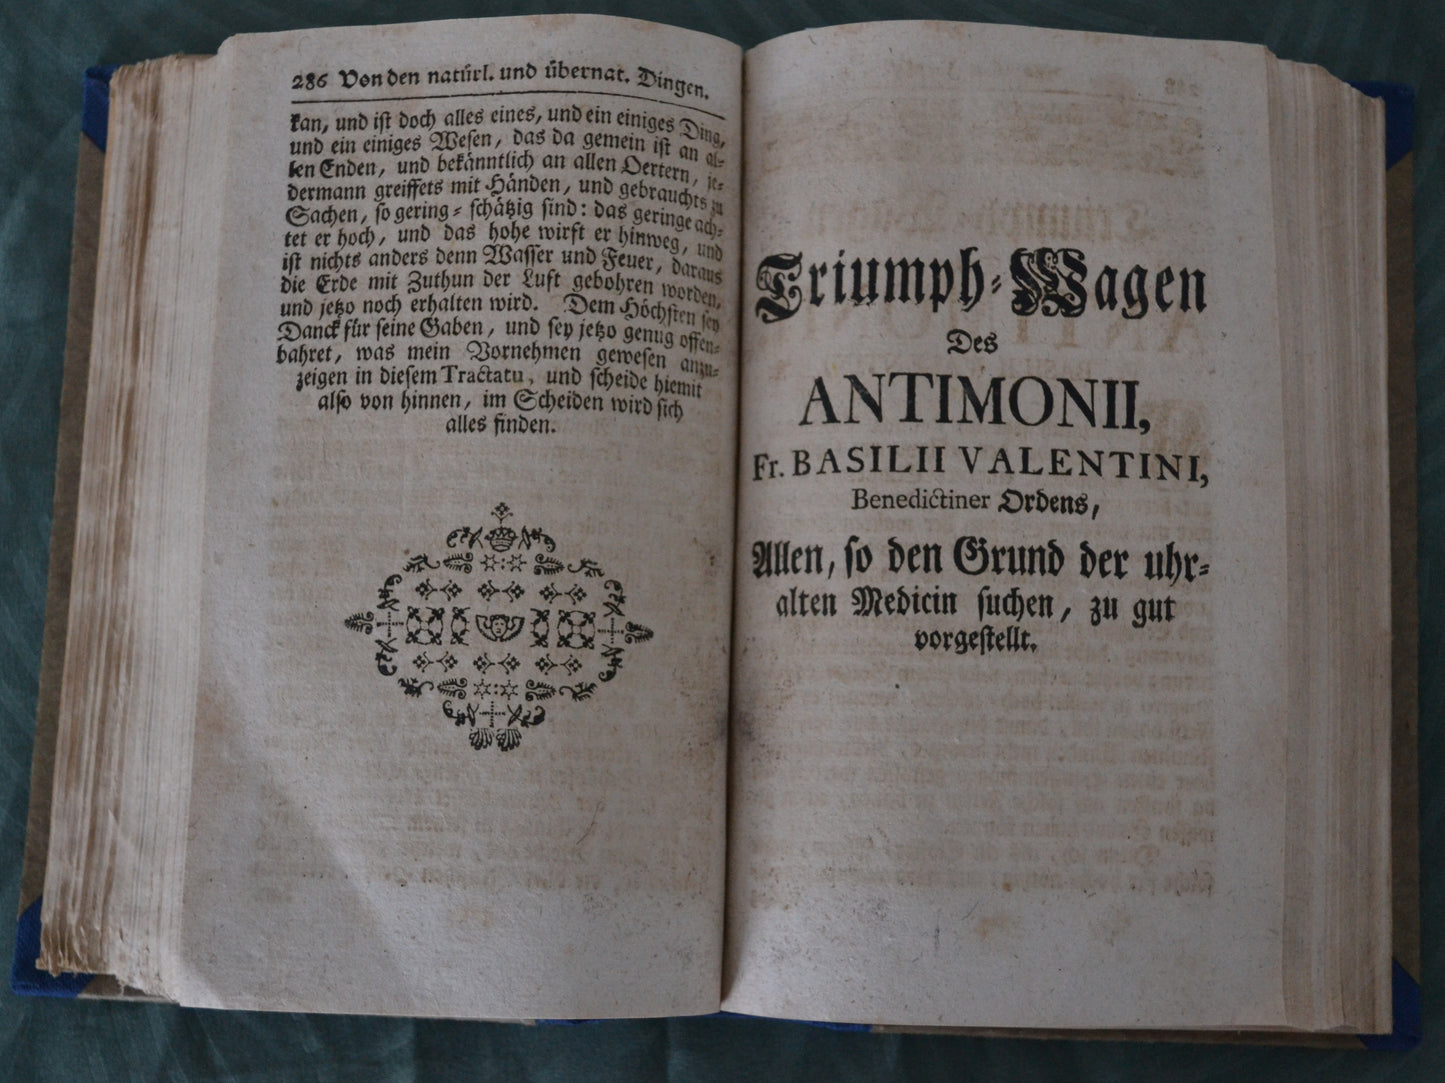 286 Von den natürl. und übernat. Dingen.
kan, und ist doch alles eines, und ein einiges Ding,
und ein einiges Wesen, das da gemein ist an al-
len Enden, und bekänntlich an allen Oertern, je-
dermann greiffets mit Händen, und gebrauchts zu
Sachen, so gering-schätzig sind: das geringe ach-
tet er hoch, und das hohe wirft er hinweg, und
ist nichts anders denn Wasser und Feuer, daraus
die Erde mit Zuthun der Luft gebohren worden,
und jetzo noch erhalten wird. Dem Höchsten sey
Danck für seine Gaben, und sey jetzo genug offen-
bahret, was mein Vornehmen gewesen anzu-
zeigen in diesem Tractatu, und scheide hiemit
also von hinnen, im Scheiden wird sich
alles finden.
Triumph-Wagen
Des
ANTIMONII,
Fr. BASILII VALENTINI,
Benedictiner Ordens,
Allen, so den Grund der uhr-
alten Medicin suchen, zu gut
vorgestellt.